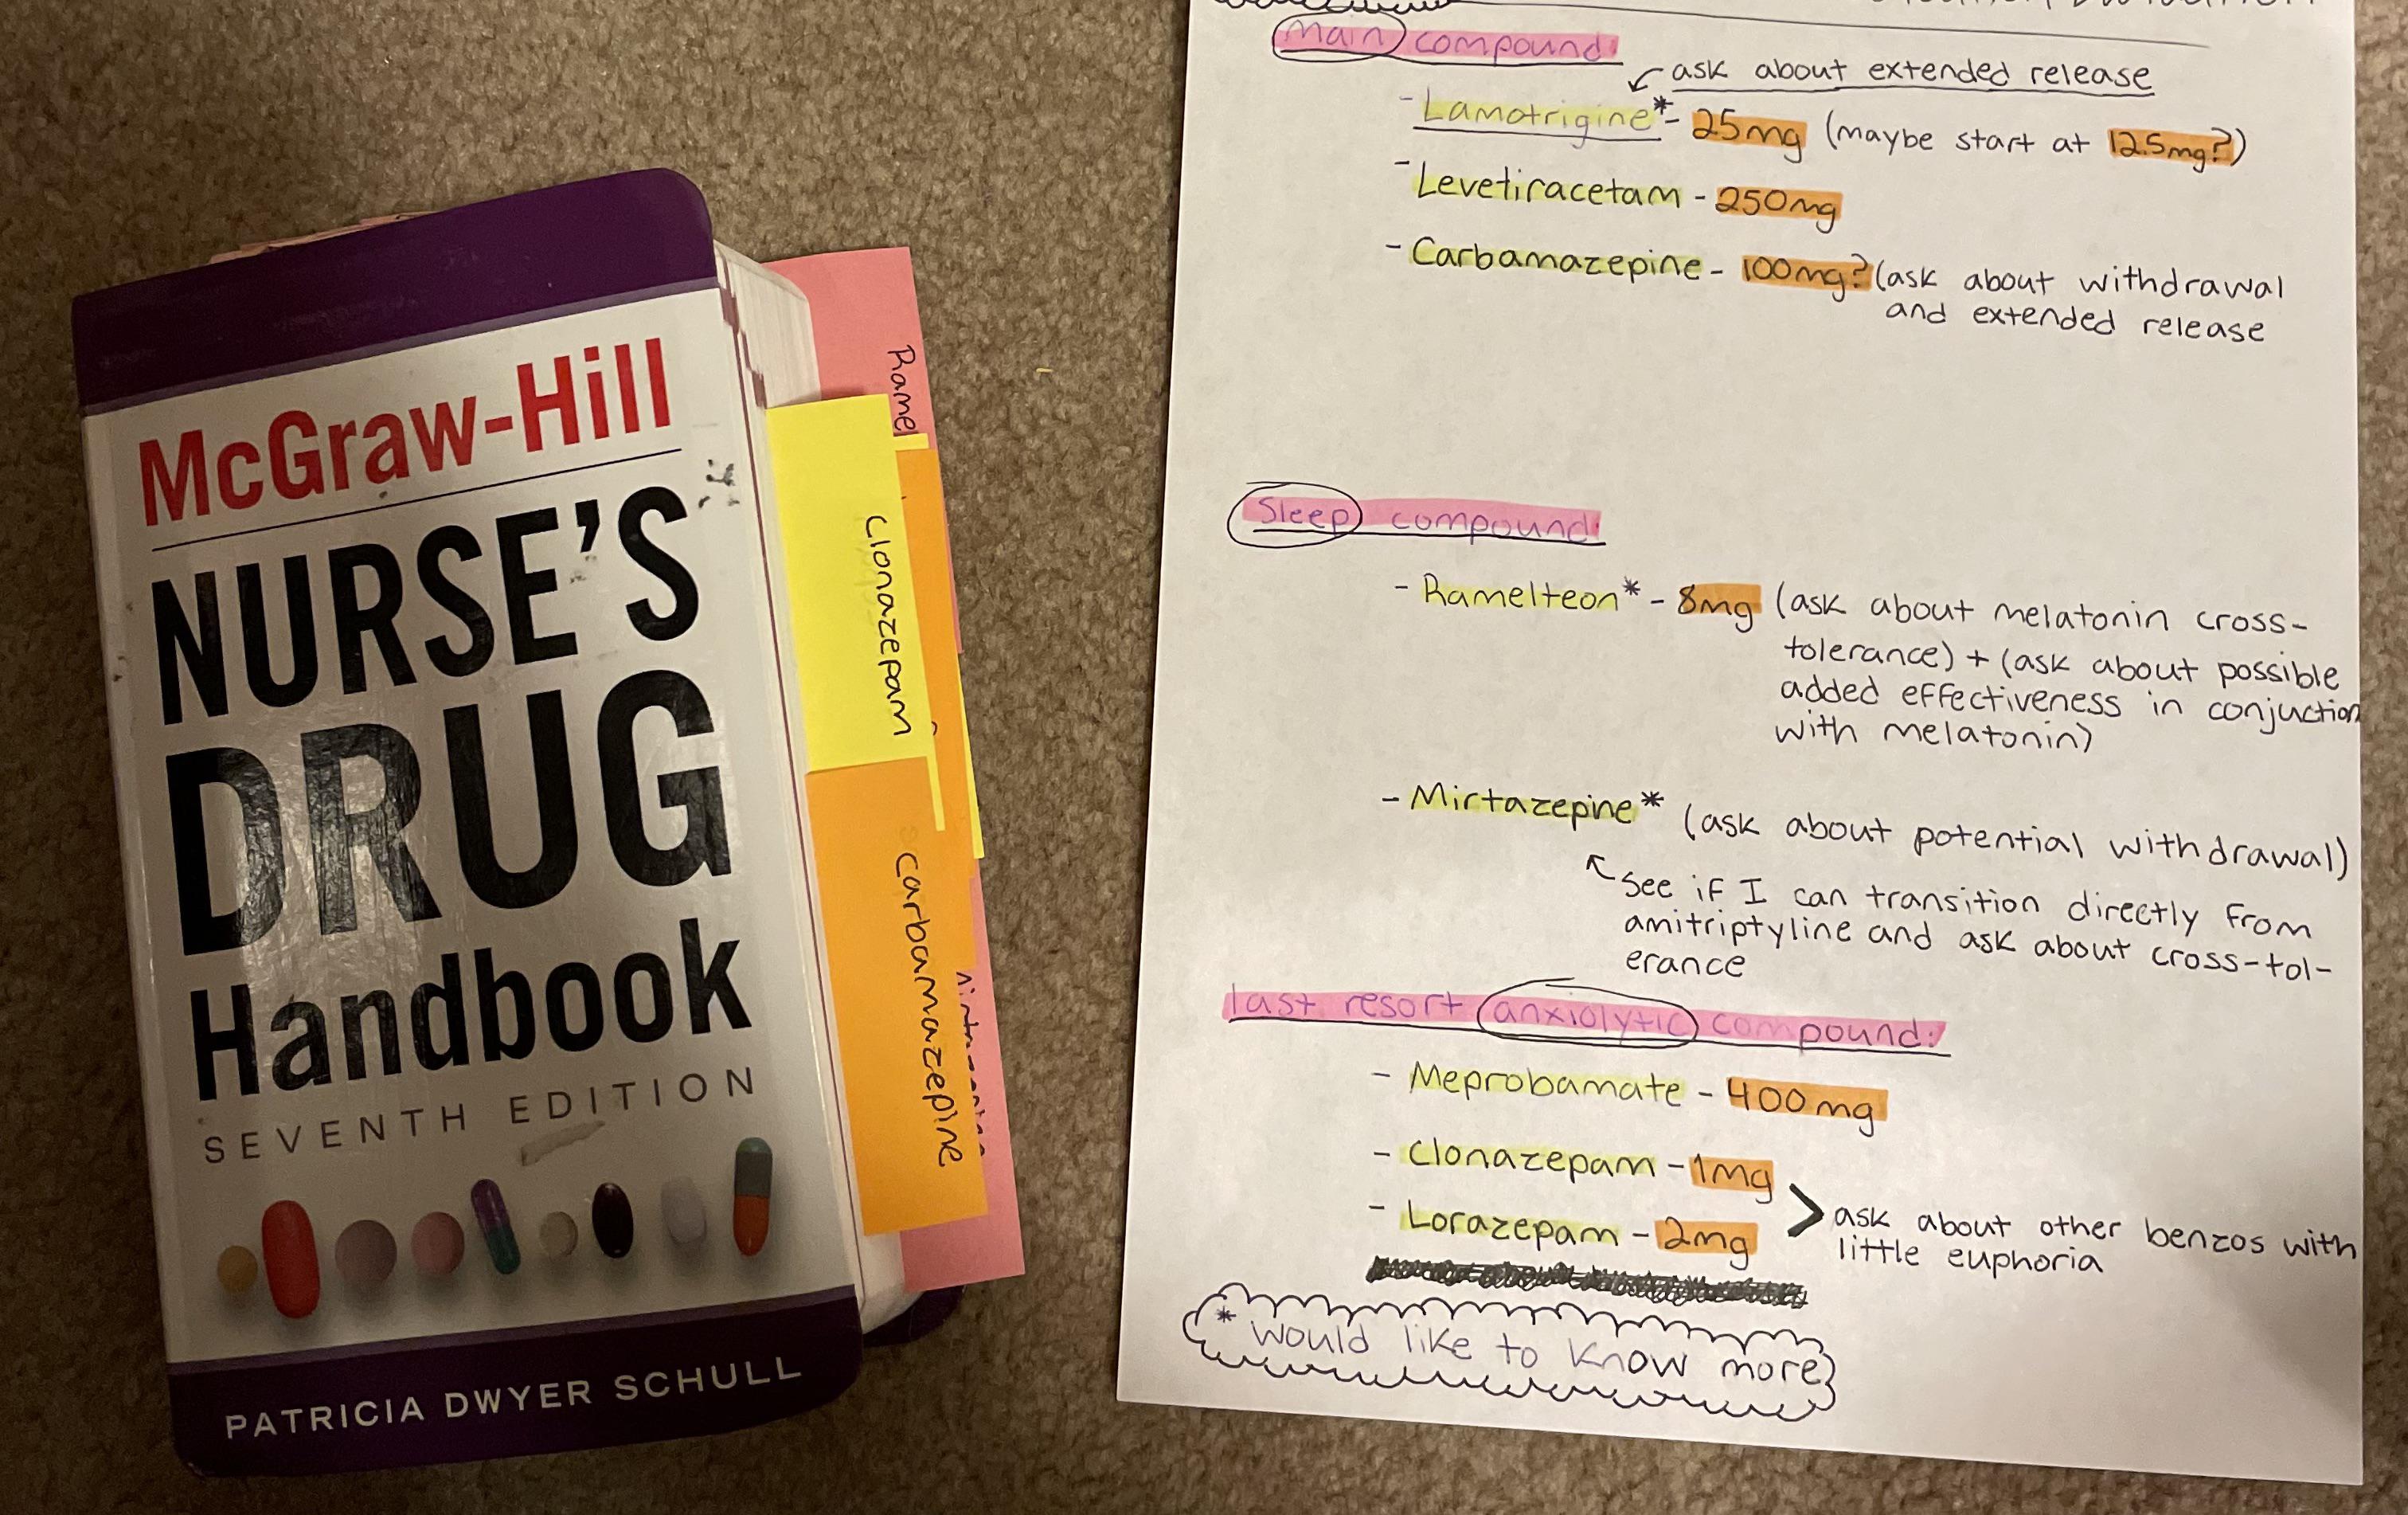 McGraw-Hill
NURSE'S
DRUG
Handbook
SEVENTH EDITION
PATRICIA DWYER SCHULL
Ramel
Clonazepam
Carbamazepine
Main compound:
ask about extended release
- Lamotrigine* - 25mg (maybe start at 12.5mg?)
- Levetiracetam - 250mg
- Carbamazepine - 100mg? (ask about withdrawal
and extended release
Sleep compound:
- Ramelteon* - 8mg (ask about melatonin cross-
tolerance) + (ask about possible
added effectiveness in conjuction
with melatonin)
- Mirtazepine* (ask about potential withdrawal)
see if I can transition directly from
amitriptyline and ask about cross-tol-
erance
last resort anxiolytic compound:
- Meprobamate - 400mg
- Clonazepam - 1mg
- Lorazepam - 2mg
> ask about other benzos with
little euphoria
* would like to know more